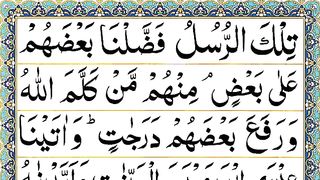 تِلْكَ الرُّسُلُ فَضَّلْنَا بَعْضَهُمْ
عَلٰى بَعْضٍ ۘ مِنْهُمْ مَّنْ كَلَّمَ اللّٰهُ
وَرَفَعَ بَعْضَهُمْ دَرَجٰتٍ ؕ وَاٰتَيْنَا